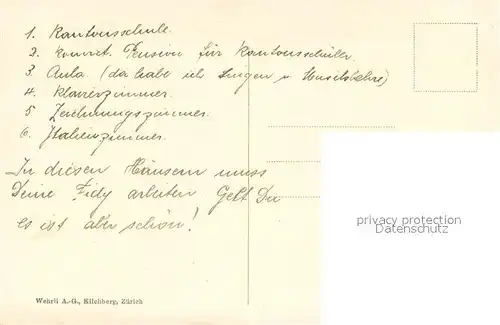 1. Kantonsschule.
2. Konvict. Pension für Kantonsschüler
3. Aula. (da habe ich Singen u Musiklehre)
4. Klavierzimmer.
5 Zeichnungszimmer.
6. Italienzimmer.
In diesen Häusern muss
Deine Fidy arbeiten Gelt Du
es ist aber schön!
privacy protection
Datenschutz
Wehrli A.-G., Kilchberg, Zürich